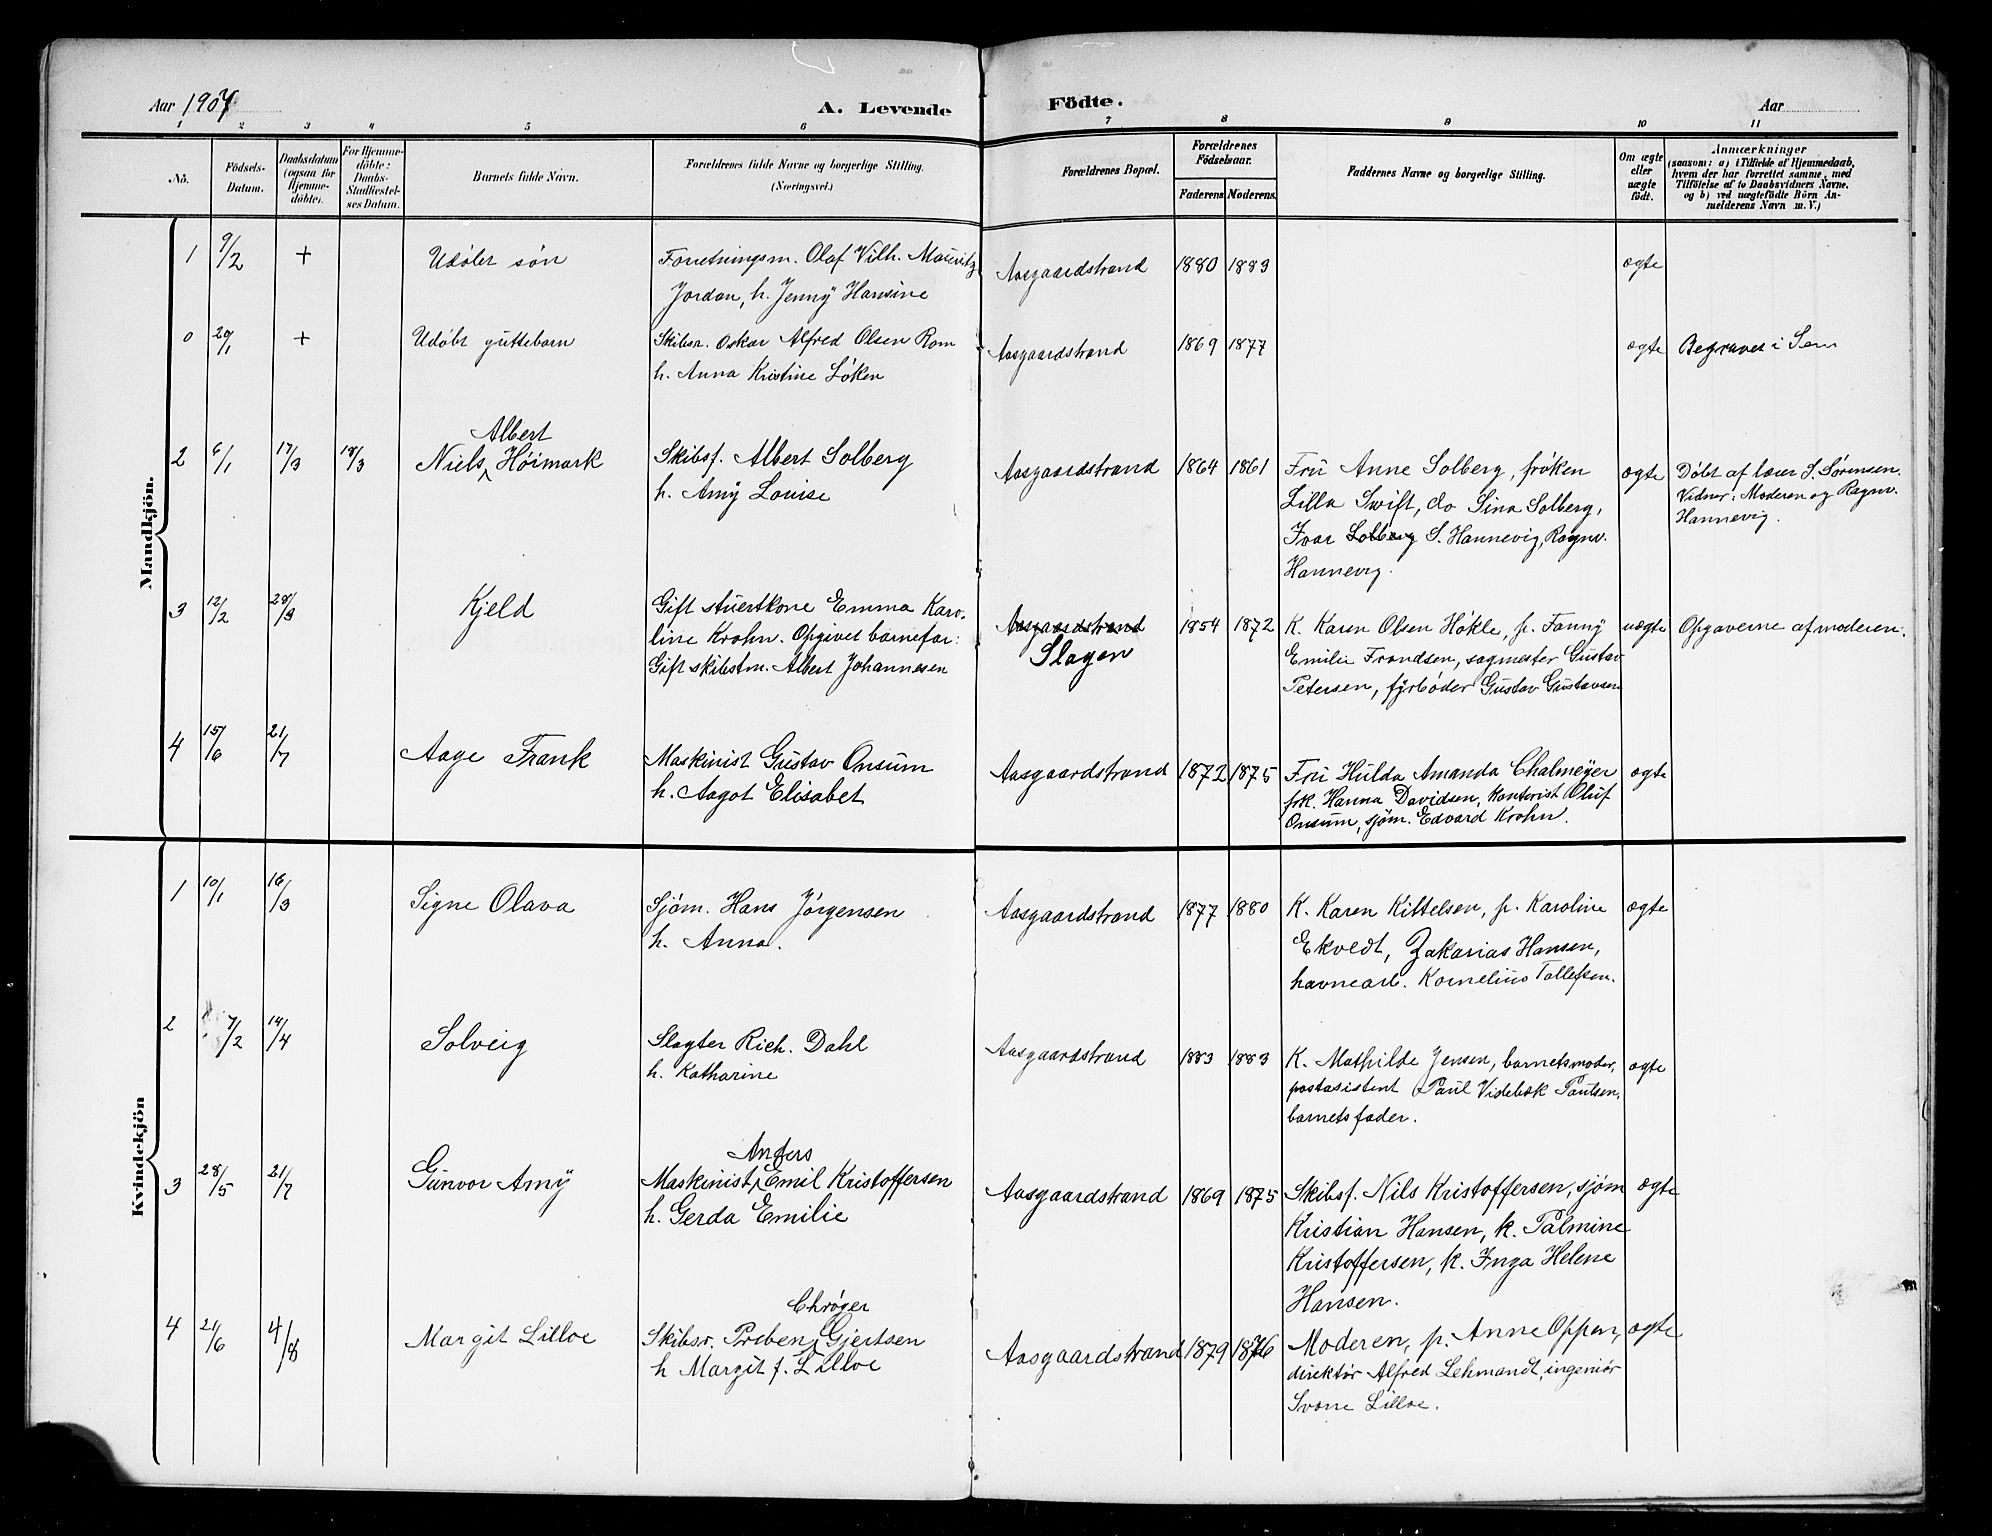 Aar 1907 A. Levende Födte. Aar
1 2 3 4 5 6 7 8 9 10 11
No. Födsels-Datum. Daabsdatum (ogsaa for Hjemme-döbte). For Hjemme-döbte: Daabs-Stadfæstel-ses Datum. Barnets fulde Navn. Forældrenes fulde Navne og borgerlige Stilling. (Næringsvei.) Forældrenes Bopæl. Forældrenes Födselsaar. Faderens Moderens. Faddernes Navne og borgerlige Stilling. Om ægte eller uægte födt. Anmærkninger (saasom: a) i Tilfælde af Hjemmedaab, hvem der har forrettet samme, med Tilföielse af to Daabsvidners Navne, og b) ved uægtefödte Börn An-melderens Navn m. V.)
Mandkjön.
1 9/2 + Udøbt søn Forretningsm. Olaf Vilh. Mauritz Aasgaardstrand 1880 1883 ægte
Jordan, h. Jenny Hansine
0 20/1 + Udøbt guttebarn Skibsr. Oskar Alfred Olsen Rom Aasgaardstrand 1869 1877 ægte Begraves i Sem
h. Anna Kristine Løken
Albert
2 6/1 17/3 18/3 Niels Høimark Skibsf. Albert Solberg Aasgaardstrand 1864 1861 Fru Anne Solberg, frøken ægte Døbt af lærer S. Sørensen.
h. Amy Louise Lilla Swift, do Sina Solberg, Vidner: Moderen og Ragnv.
Ivar Solberg S. Hannevig, Ragnv. Hannevig.
Hannevig.
3 12/2 28/3 Kjeld Gift stuertkone Emma Karo- Aasgaardstrand 1854 1872 K. Karen Olsen Høkle, p. Fanny uægte Opgaverne af moderen.
line Krohn. Opgivet barnefar: Slagen Emilie Frandsen, sagmester Gustav
Gift skibstm. Albert Johannesen Petersen, fyrbøder Gustav Gustavsen
4 15/6 21/7 Aage Frank Maskinist Gustav Onsum Aasgaardstrand 1872 1875 Fru Hulda Amanda Chalmeyer ægte
h. Aagot Elisabet frk. Hanna Davidsen, kontorist Oluf
Onsum, sjøm. Edvard Krohn.
Kvindekjön
1 10/1 16/3 Signe Olava Sjøm. Hans Jørgensen Aasgaardstrand 1877 1880 K. Karen Kittelsen, p. Karoline ægte
h. Anna. Ekvedt, Zakarias Hansen,
havnearb. Kornelius Tollefsen.
2 7/2 14/4 Solveig Slagter Rich. Dahl Aasgaardstrand 1883 1883 K. Mathilde Jensen, barnets moder, ægte
h. Katharine postasistent Paul Videbæk Paulsen,
barnets fader.
Anders
3 28/5 21/7 Gunvor Amy Maskinist Emil Kristoffersen Aasgaardstrand 1869 1875 Skibsf. Nils Kristoffersen, sjøm ægte
h. Gerda Emilie Kristian Hansen, k. Palmine
Kristoffersen, k. Inga Helene
Hansen.
Chrøger
4 21/6 4/8 Margit Lilloe Skibsr. Preben Gjertsen Aasgaardstrand 1879 1876 Moderen, p. Anne Oppen, ægte
h Margit f. Lilloe direktør Alfred Lehmandt, ingeniør
Svane Lilloe.